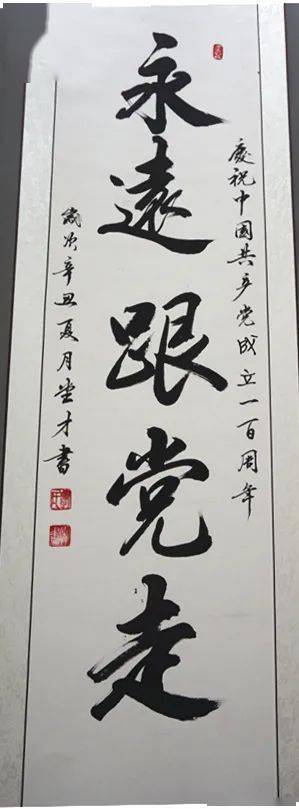 慶祝中国共产党成立一百周年
永遠跟党走
歲次辛丑夏月坐才書